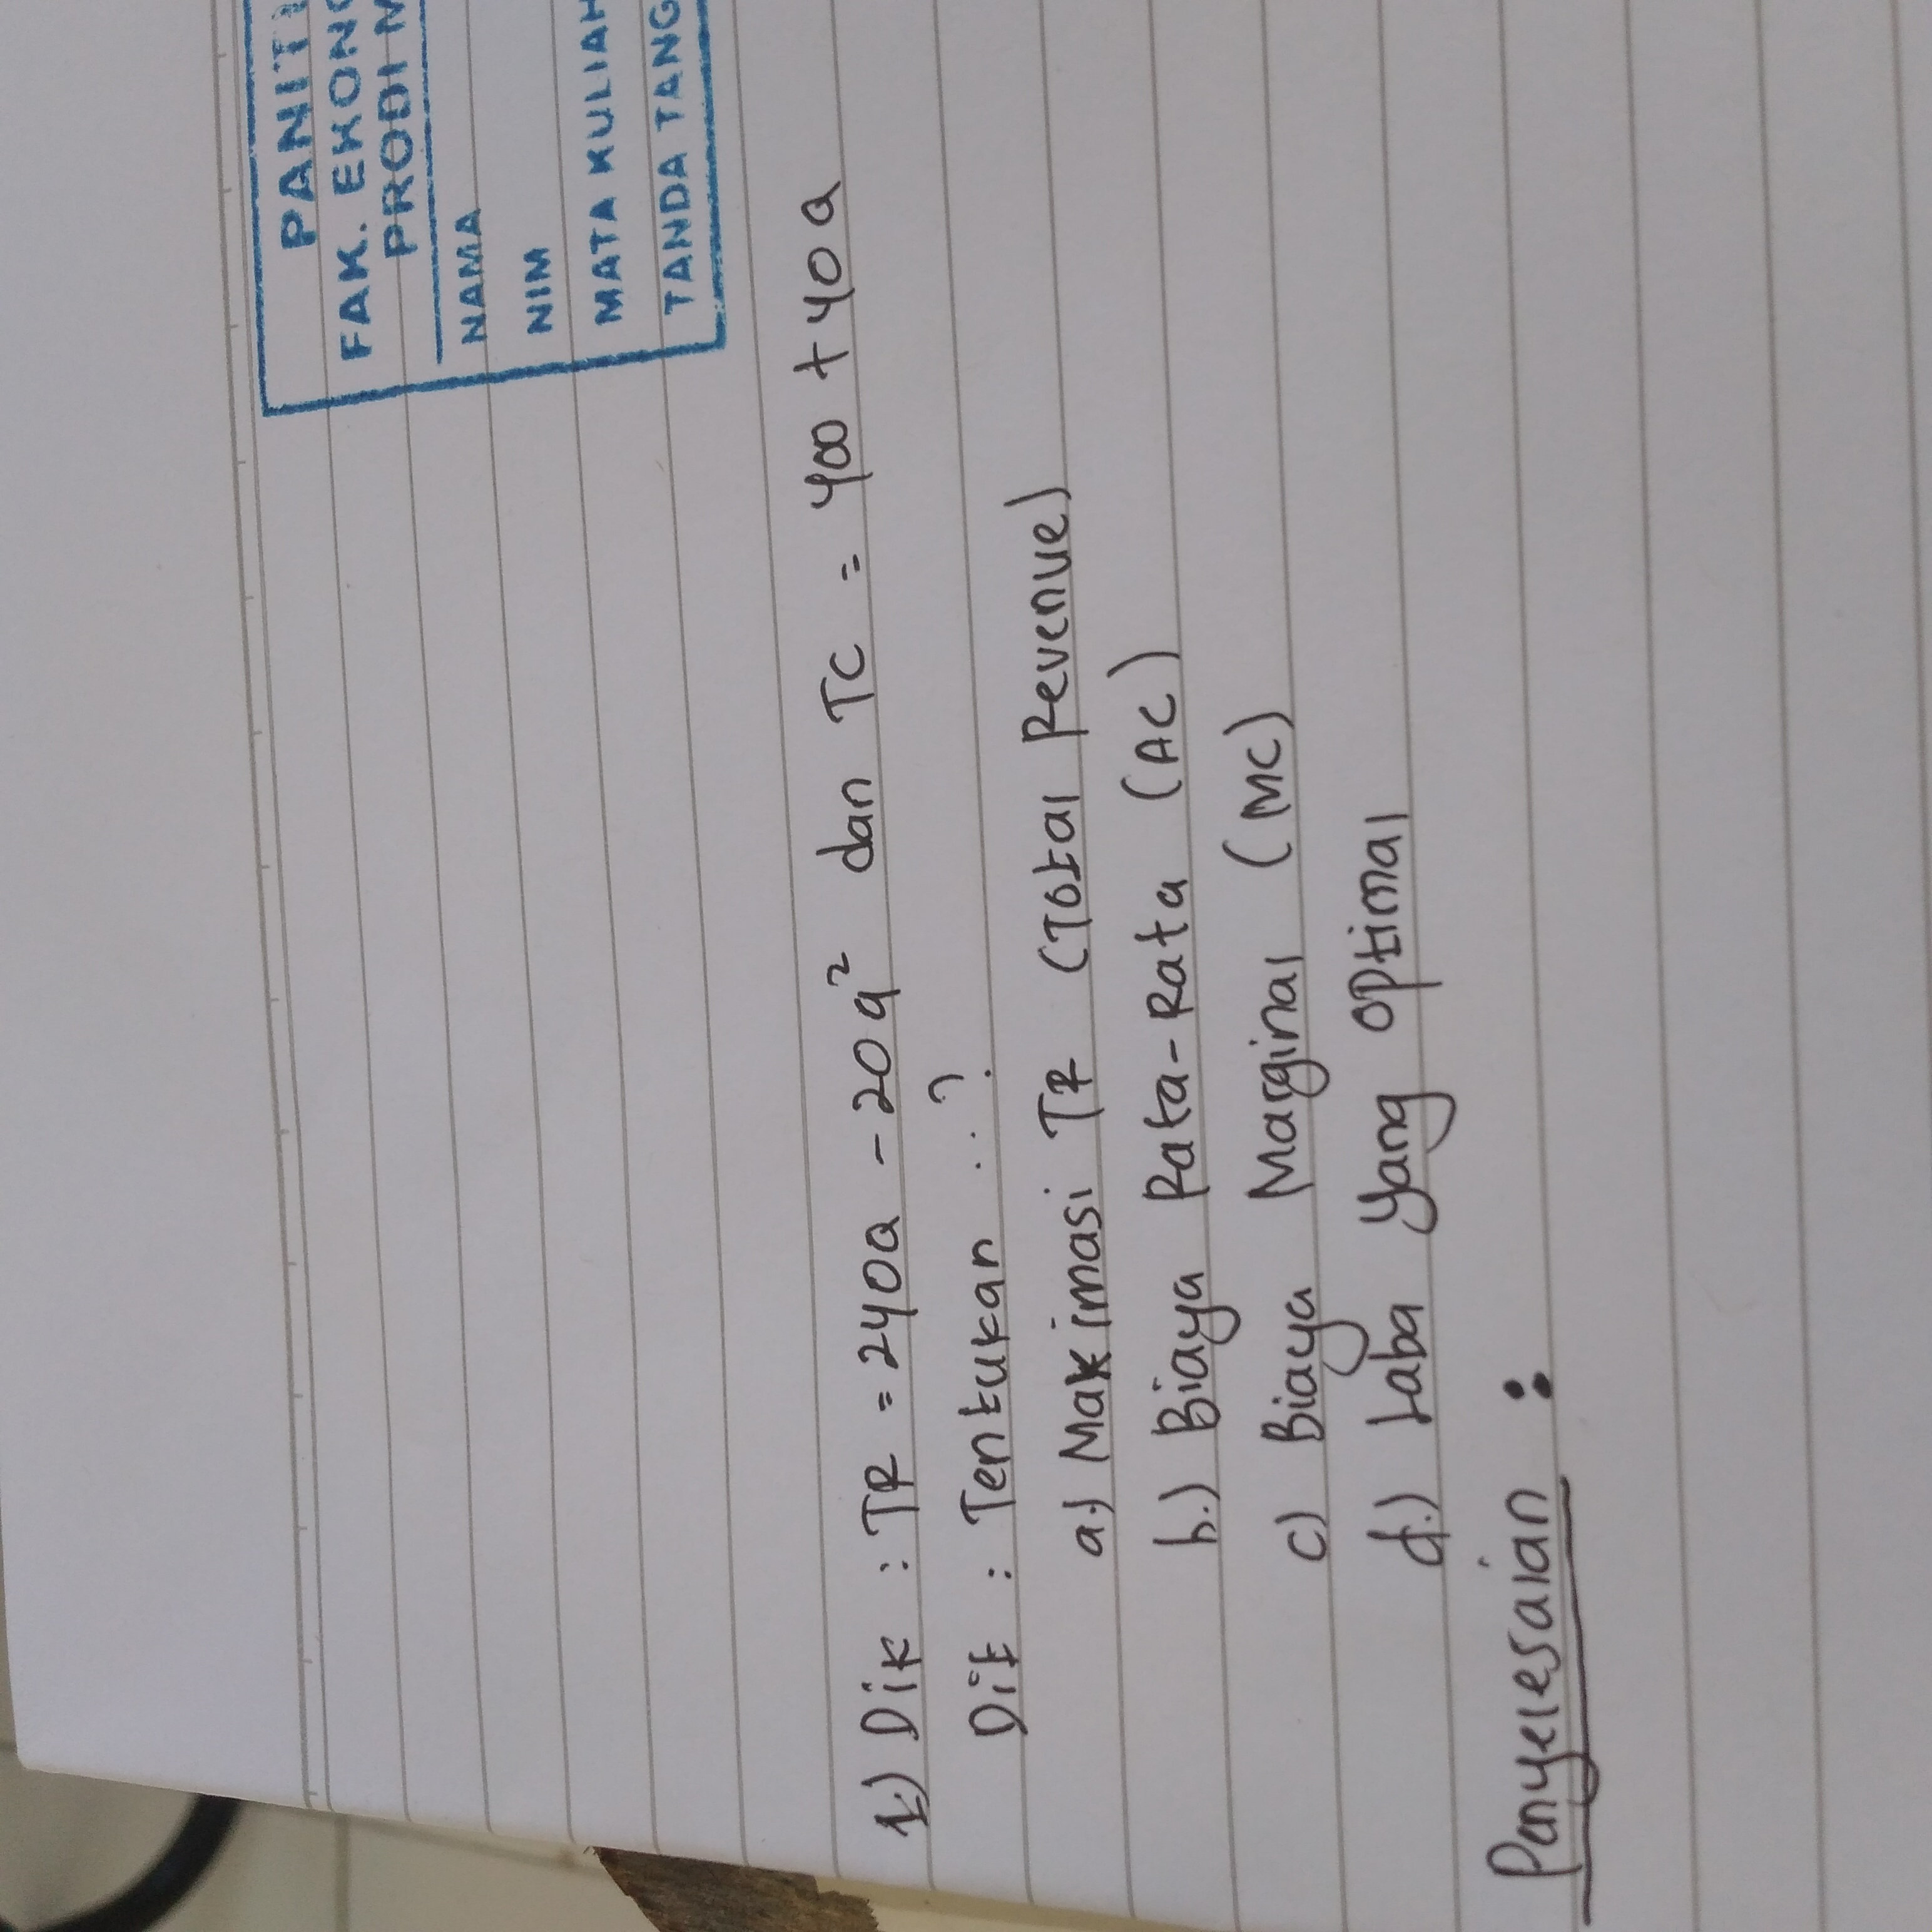 PANITI
FAK. EKONO
PRODI M
NAMA
NIM
MATA KULIAH
TANDA TANG
1.) Dik : TR = 240Q - 20q² dan TC = 400 + 40Q
Dit : Tentukan ..?
a.) Makimasi TR (Total Revenue)
b.) Biaya Rata-Rata (AC)
c) Biaya Marginal (MC)
d.) Laba yang optimal
Penyelesaian :